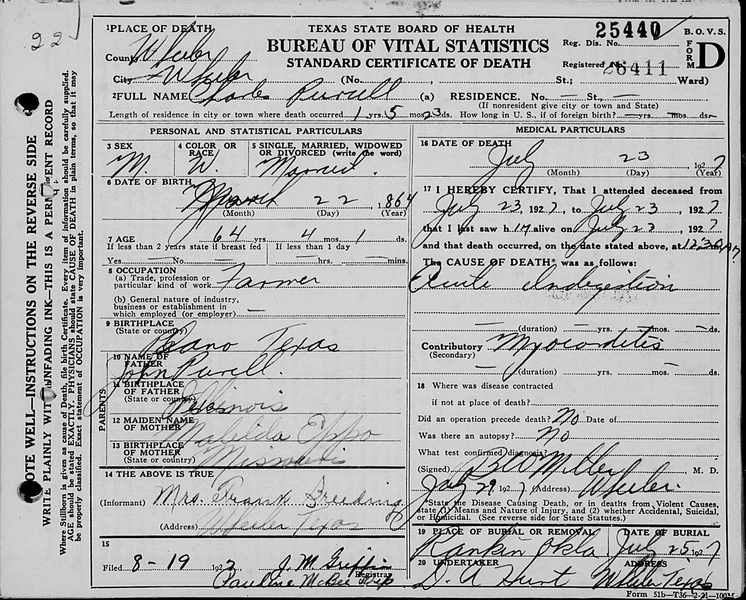 TEXAS STATE BOARD OF HEALTH
BUREAU OF VITAL STATISTICS
STANDARD CERTIFICATE OF DEATH
25440
Reg. Dis. No.
Registered No. 26411
B. O. V. S.
FORM D
1 PLACE OF DEATH
County Wheeler
City Wheeler (No. St.; Ward)
2 FULL NAME Charles Purcell (a) RESIDENCE. No. — St. —
(If nonresident give city or town and State)
Length of residence in city or town where death occurred 1 yrs. 5 mos. 23 ds. How long in U. S., if of foreign birth? — yrs. — mos. — ds.
PERSONAL AND STATISTICAL PARTICULARS
3 SEX
M.
4 COLOR OR RACE
W.
5 SINGLE, MARRIED, WIDOWED OR DIVORCED (write the word)
Married.
6 DATE OF BIRTH
March 22, 1864
(Month) (Day) (Year)
7 AGE
64 yrs. 4 mos. 1 ds.
If less than 2 years state if breast fed
If less than 1 day
Yes — No — hrs. mins.
8 OCCUPATION
(a) Trade, profession or
particular kind of work Farmer
(b) General nature of industry,
business or establishment in
which employed (or employer) —
9 BIRTHPLACE
(State or county) Plano Texas
PARENTS
10 NAME OF FATHER
John Purcell.
11 BIRTHPLACE OF FATHER
(State or county) Illinois
12 MAIDEN NAME OF MOTHER
Matilda
13 BIRTHPLACE OF MOTHER
(State or country) Missouri
14 THE ABOVE IS TRUE
(Informant) Mrs. Frank
(Address) Wheeler Texas
15
Filed 8-19 1927 J. M. Griffin
Registrar
Pauline McBee
MEDICAL PARTICULARS
16 DATE OF DEATH
July 23 1927
(Month) (Day) (Year)
17 I HEREBY CERTIFY, That I attended deceased from
July 23, 1927, to July 23, 1927
that I last saw him alive on July 23, 1927
and that death occurred, on the date stated above, at 12:30 A m.
The CAUSE OF DEATH* was as follows:
Acute Indigestion
(duration) — yrs. — mos. — ds.
Contributory Myocarditis
(Secondary)
(duration) yrs. mos. ds.
18 Where was disease contracted
if not at place of death?
Did an operation precede death? No Date of
Was there an autopsy? No
What test confirmed diagnosis?
(Signed) Miller M. D.
July 29 1927 (Address) Wheeler.
*State the Disease Causing Death, or in deaths from Violent Causes,
state (1) Means and Nature of Injury, and (2) whether Accidental, Suicidal,
or Homicidal. (See reverse side for State Statutes.)
19 PLACE OF BURIAL OR REMOVAL
Rankin Okla
DATE OF BURIAL
July 25 1927
20 UNDERTAKER
D. A. Hunt
ADDRESS
Wheeler Texas
Form 51b—T36—2-21—100M
NOTE WELL—INSTRUCTIONS ON THE REVERSE SIDE
WRITE PLAINLY WITH UNFADING INK—THIS IS A PERMANENT RECORD
Where Stillborn is given as cause of Death, file birth Certificate. Every item of information should be carefully supplied.
AGE should be stated EXACTLY. PHYSICIANS should state CAUSE OF DEATH in plain terms, so that it may
be properly classified. Exact statement of OCCUPATION is very important.